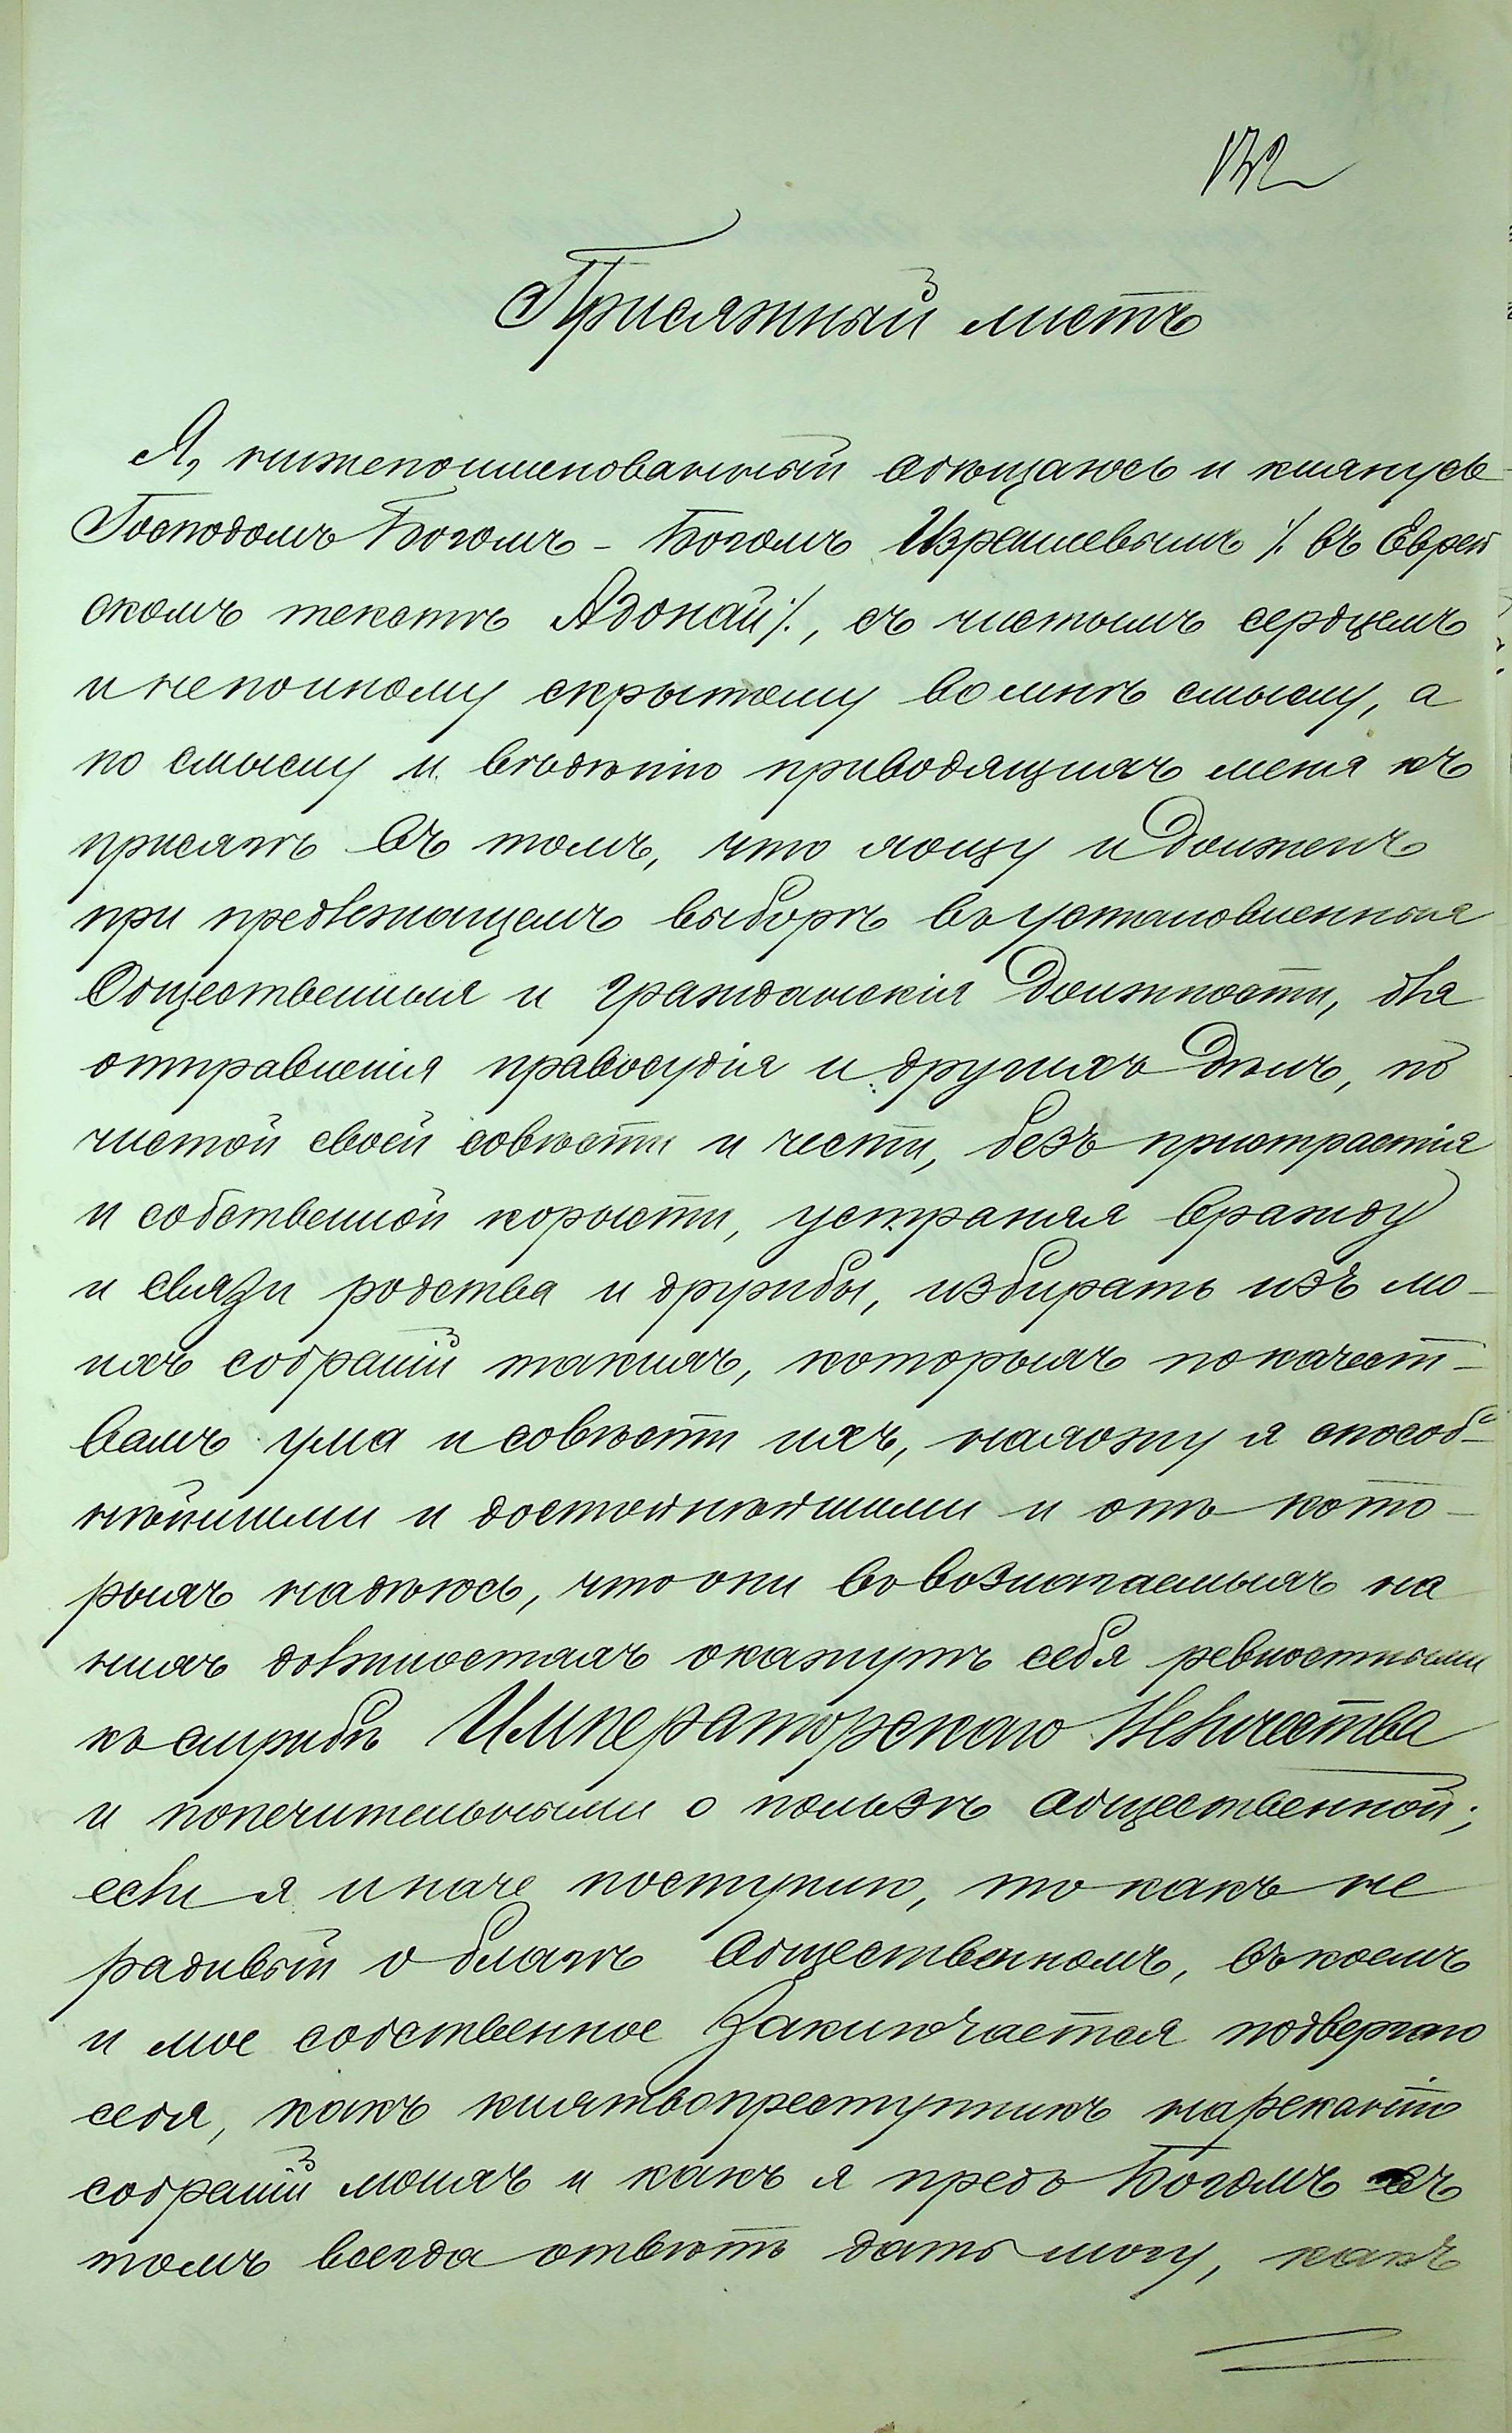 172
Присяжный листъ
Я, нижепоименованный обѣщаюсь и клянусь
Господомъ Богомъ - Богомъ Израилевымъ ⁒ въ Еврей
скомъ текстѣ Адонай ⁒, съ чистымъ сердцемъ
и непоиному скрытому во мнѣ смыслу, а
по смыслу и вѣдѣнію приводящихъ меня къ
присягѣ въ томъ, что хощу и долженъ
при предлежащемъ выборѣ въ установленныя
Общественныя и гражданскія должности, для
отправленія правосудія и другихъ дѣлъ, по
чистой своей совѣсти и чести, безъ пристрастія
и собственной корысти, устраняя вражду
и связи родства и дружбы, избирать изъ мо-
ихъ собратій такихъ, которыхъ по качест-
вамъ ума и совѣсти ихъ, нахожу я способ-
нѣйшими и достойнѣйшими и отъ кото-
рыхъ надѣюсь, что они въ возлагаемыхъ на
нихъ должностяхъ окажутъ себя ревностными
къ службѣ Императорскаго Величества
и попечительными о пользѣ общественной;
если я иначе поступлю, то какъ не
радивый о благѣ общественномъ, въ коемъ
и мое собственное заключается подвергаю
себя, какъ клятвопреступникъ нареканію
собратій моихъ и какъ я предъ Богомъ въ
томъ всегда отвѣтъ дать могу, какъ